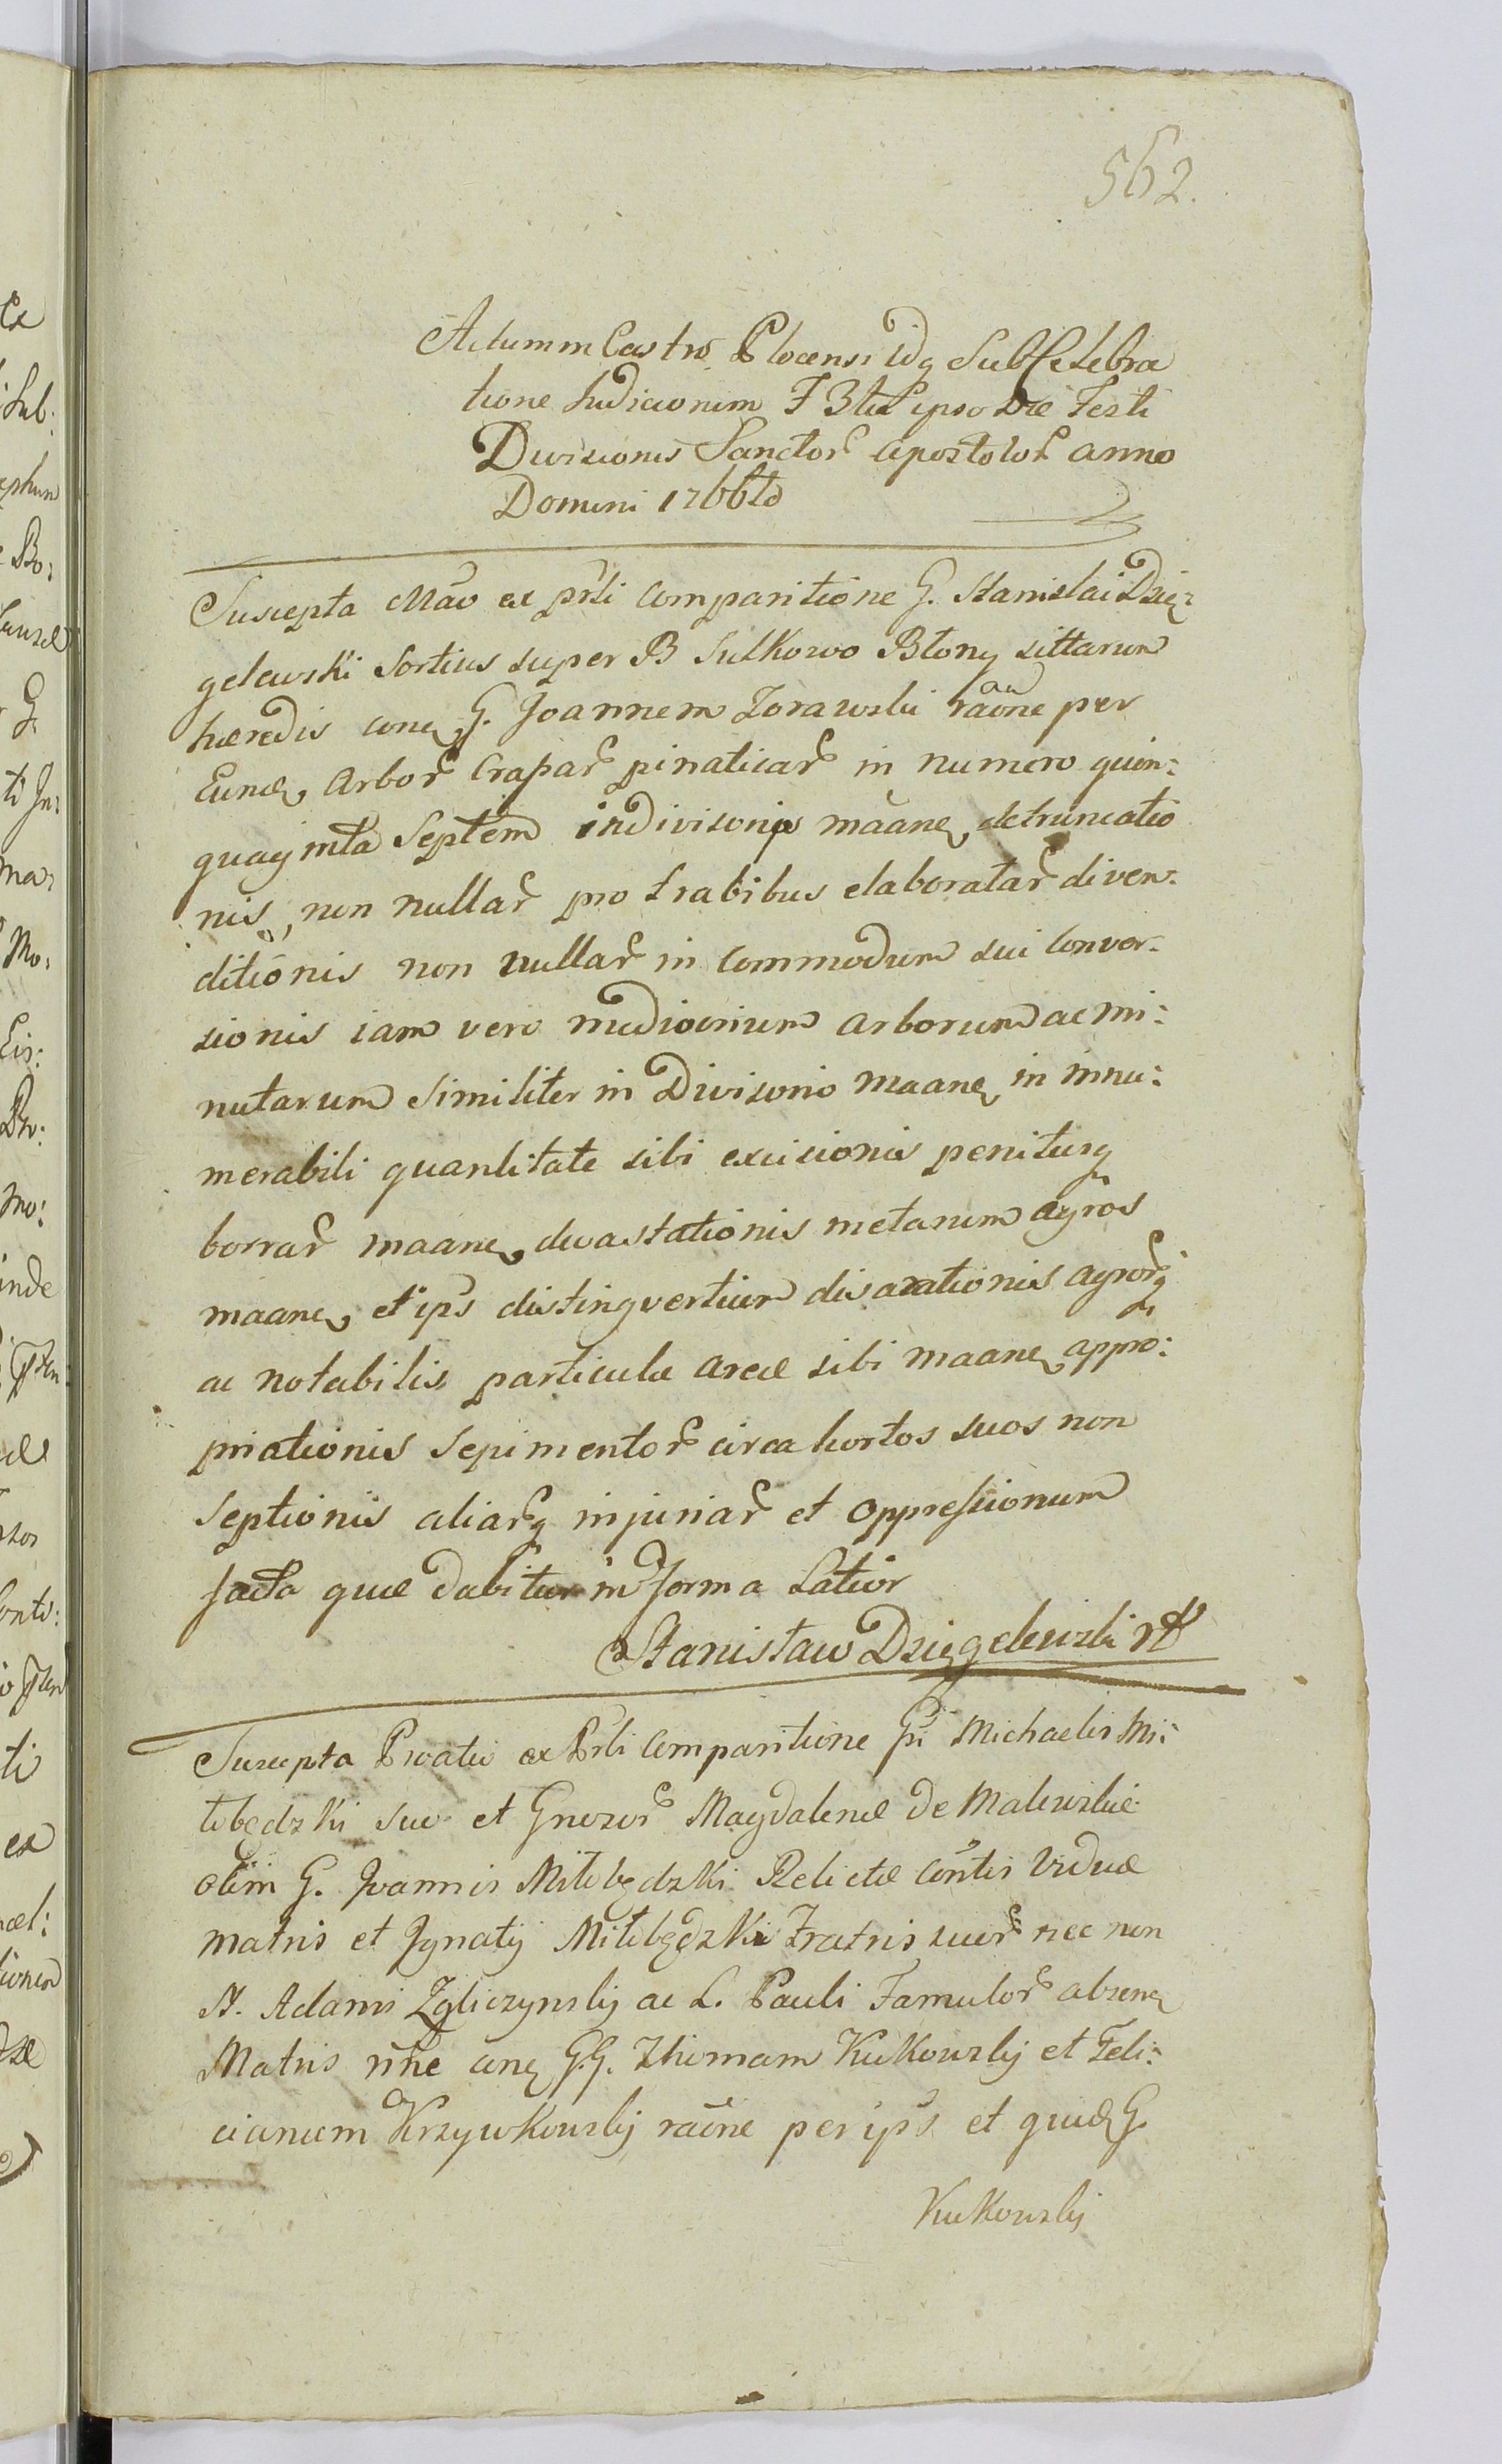 562.
Actum in Castro Plocensi idq Sub Celebra
tione Judiciorum F Btu ipso Die Festi
Divisionis Sanctor Apostolor anno
Domini 1766to
Suscepta Mão ex prśti Comparitione G. Stanislai Dzię:
gelewski Sortius super B Sulkowo Błony sittarum
hæredis conq G. Joannem Zorawski raõne per
Eund Arbor Crassar pinaticar in numero quin:
quaginta Septem indivisonio maane detruncatio
nis, non nullar pro trabibus elaboratar diven:
ditionis non nullar in Commodum sui Conver:
sionis iam vero mediocrium arborum ac mi:
nutarum Similiter in Divisonio maane in innu:
merabili quantitate sibi excisionis penitusq
borrar maane devastationis metarum agros
maane et ips distingvertium disaxationis agrorq
ac notabilis particulæ areæ sibi maane appro:
priationis Sepimentor circa hortos suos non
Septionis aliarq injuriar et oppressionum
facta quæ dabitur in forma Latior
Stanisław Dzięgelewski
Suscepta Pivatio ex Prśti Comparitione Gi Michaelis Mi:
łobędzki suo et Gnrosor Magdalenæ De Malewskie
olim G. Joannis Miłobędzki Relictæ Cońtis Viduæ
matris et Ignatij Miłobędzki Fratris suor nec non
N. Adami Zgliczynskij ac L. Pauli Famulor absenq
Matris nñe conq G.G. Thomam Kukowskij et Feli:
cianum Krzywkowskij raõne per ips et quid G.
Kukowskij